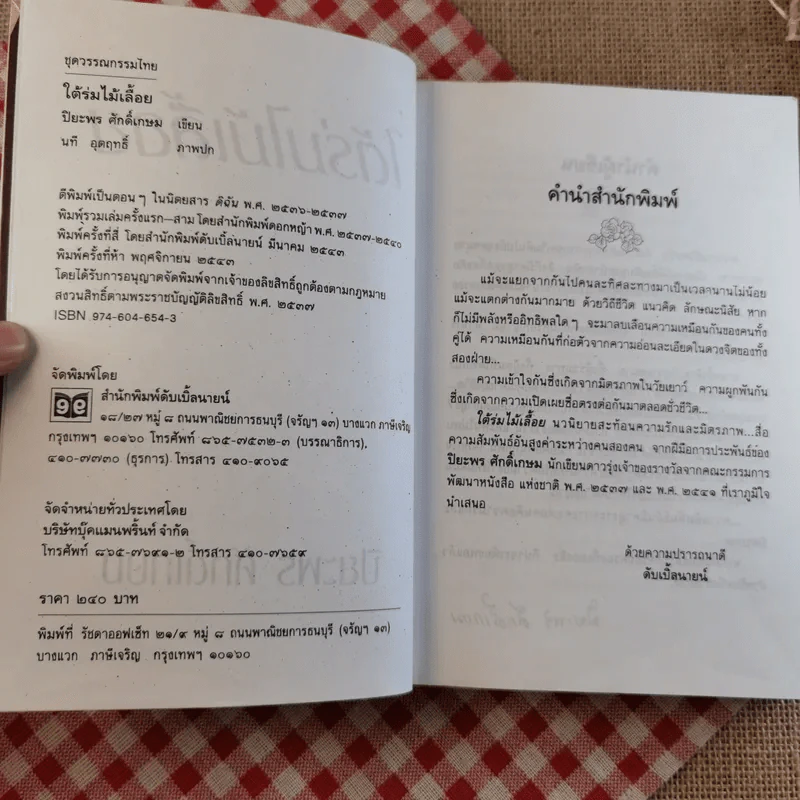 ชุดวรรณกรรมไทย
ใต้ร่มไม้เลื้อย
ปิยะพร ศักดิ์เกษม เขียน
นที อุตฤทธิ์ ภาพปก
ตีพิมพ์เป็นตอนๆ ในนิตยสาร ดิฉัน พ.ศ. ๒๕๓๖-๒๕๓๗
พิมพ์รวมเล่มครั้งแรก-สาม โดยสำนักพิมพ์ดอกหญ้า พ.ศ. ๒๕๓๗-๒๕๔๐
พิมพ์ครั้งที่สี่ โดยสำนักพิมพ์ดับเบิ้ลนายน์ มีนาคม ๒๕๔๓
พิมพ์ครั้งที่ห้า พฤศจิกายน ๒๕๔๓
โดยได้รับการอนุญาตจัดพิมพ์จากเจ้าของลิขสิทธิ์ถูกต้องตามกฎหมาย
สงวนสิทธิ์ตามพระราชบัญญัติลิขสิทธิ์ พ.ศ. ๒๕๓๗
ISBN 974-604-654-3
จัดพิมพ์โดย
๙๙ สำนักพิมพ์ดับเบิ้ลนายน์
๑๘/๒๗ หมู่ ๘ ถนนพาณิชยการธนบุรี (จรัญฯ ๑๓) บางแวก ภาษีเจริญ
กรุงเทพฯ ๑๐๑๖๐ โทรศัพท์ ๘๖๕-๗๕๓๒-๓ (บรรณาธิการ),
๔๑๐-๗๗๓๐ (ธุรการ) โทรสาร ๔๑๐-๙๐๖๕
จัดจำหน่ายทั่วประเทศโดย
บริษัทบุ๊คแมนพริ้นท์ จำกัด
โทรศัพท์ ๘๖๕-๗๖๙๑-๒ โทรสาร ๔๑๐-๗๖๕๙
ราคา ๒๔๐ บาท
พิมพ์ที่ รัชดาออฟเซ็ท ๒๑/๙ หมู่ ๘ ถนนพาณิชยการธนบุรี (จรัญฯ ๑๓)
บางแวก ภาษีเจริญ กรุงเทพฯ ๑๐๑๖๐
คำนำสำนักพิมพ์
แม้จะแยกจากกันไปคนละทิศละทางมาเป็นเวลานานไม่น้อย
แม้จะแตกต่างกันมากมาย ด้วยวิถีชีวิต แนวคิด ลักษณะนิสัย หาก
ก็ไม่มีพลังหรืออิทธิพลใดๆ จะมาลบเลือนความเหมือนกันของคนทั้ง
คู่ได้ ความเหมือนกันที่ก่อตัวจากความอ่อนละเอียดในดวงจิตของทั้ง
สองฝ่าย...
ความเข้าใจกันซึ่งเกิดจากมิตรภาพในวัยเยาว์ ความผูกพันกัน
ซึ่งเกิดจากความเปิดเผยซื่อตรงต่อกันมาตลอดชั่วชีวิต...
ใต้ร่มไม้เลื้อย นวนิยายสะท้อนความรักและมิตรภาพ...สื่อ
ความสัมพันธ์อันสูงค่าระหว่างคนสองคน จากฝีมือการประพันธ์ของ
ปิยะพร ศักดิ์เกษม นักเขียนดาวรุ่งเจ้าของรางวัลจากคณะกรรมการ
พัฒนาหนังสือ แห่งชาติ พ.ศ. ๒๕๓๗ และ พ.ศ. ๒๕๔๑ ที่เราภูมิใจ
นำเสนอ
ด้วยความปรารถนาดี
ดับเบิ้ลนายน์